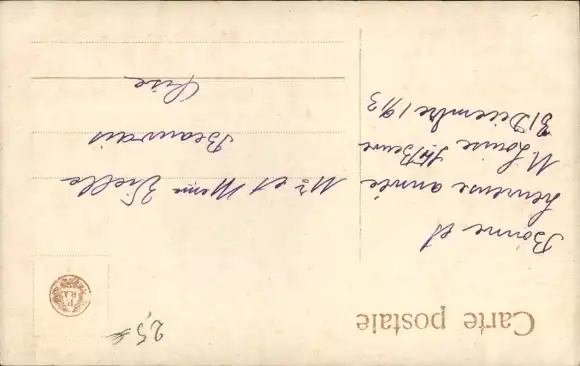 Carte postale
Bonne et
heureuse année
M. Louise
31 Décembre 1913
Mr et Mme Vielle
Beauvais
Oise
2,5